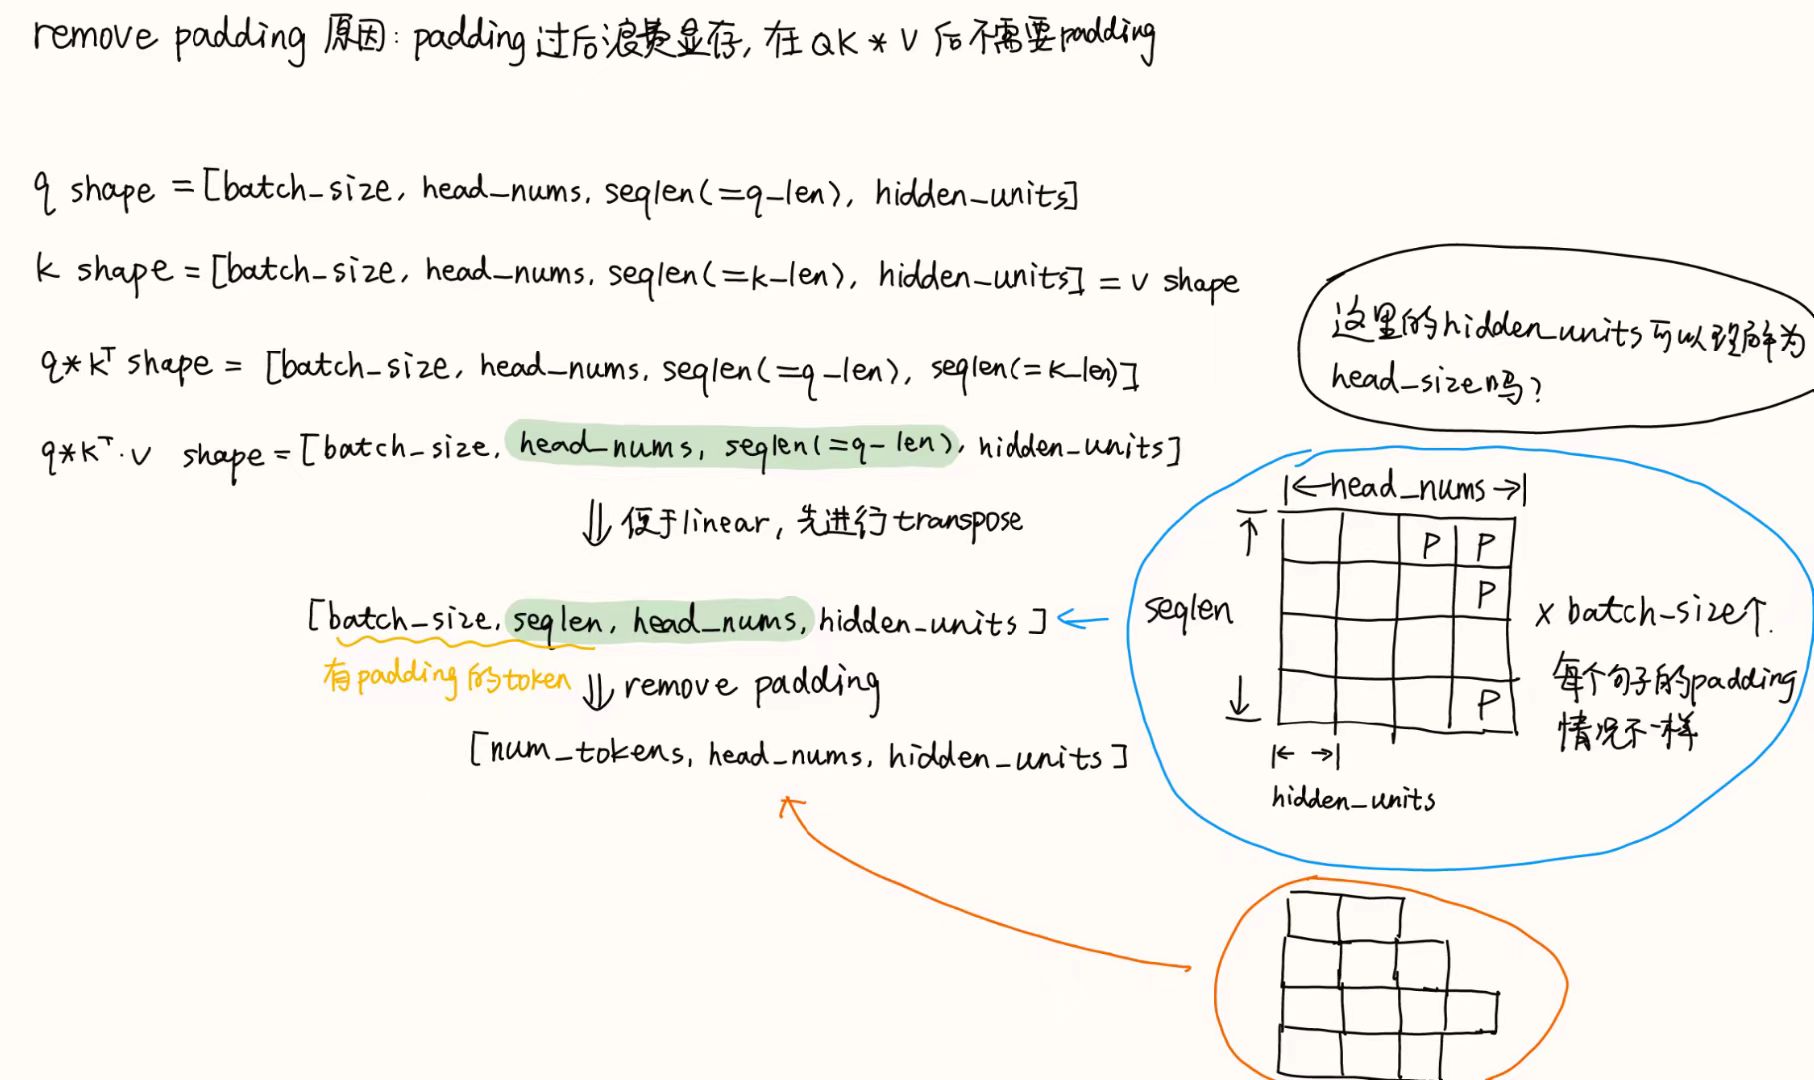 remove padding 原因: padding过后浪费显存, 在 QK * V 后不需要padding
q shape = [batch_size, head_nums, seqlen(=q-len), hidden_units]
k shape = [batch_size, head_nums, seqlen(=k-len), hidden_units] = v shape
q*kᵀ shape = [batch_size, head_nums, seqlen(=q-len), seqlen(=k_len)]
q*kᵀ·v shape = [batch_size, head_nums, seqlen(=q-len), hidden_units]
⇓ 便于linear, 先进行transpose
[batch_size, seqlen, head_nums, hidden_units]
有padding的token
⇓ remove padding
[num_tokens, head_nums, hidden_units]
这里的hidden_units可以理解为
head_size吗?
|←head_nums→|
P P
P
seqlen
P
× batch_size个.
每个句子的padding
情况不一样
|← →|
hidden_units